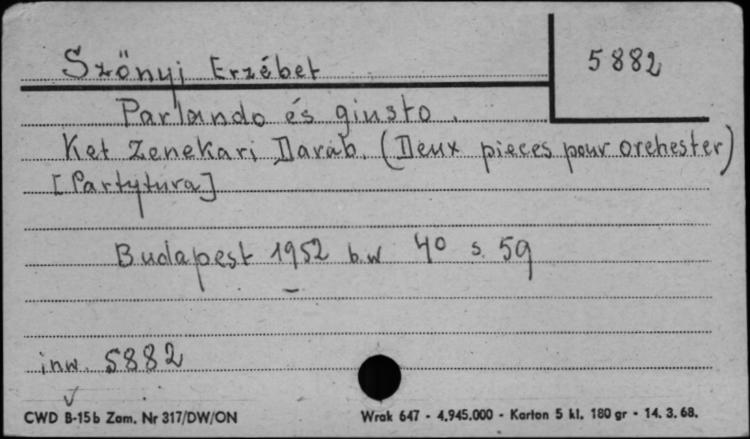 Szőnyi Erzébet
5882
Parlando és giusto.
Ket Zenekari Daráb. (Deux pieces pour orchester)
[Partytura]
Budapest 1952 b.w 4° s. 59
inw. 5882
CWD B-15b Zam. Nr 317/DW/ON
Wrak 647 - 4.945.000 - Karton 5 kl. 180 gr - 14. 3. 68.